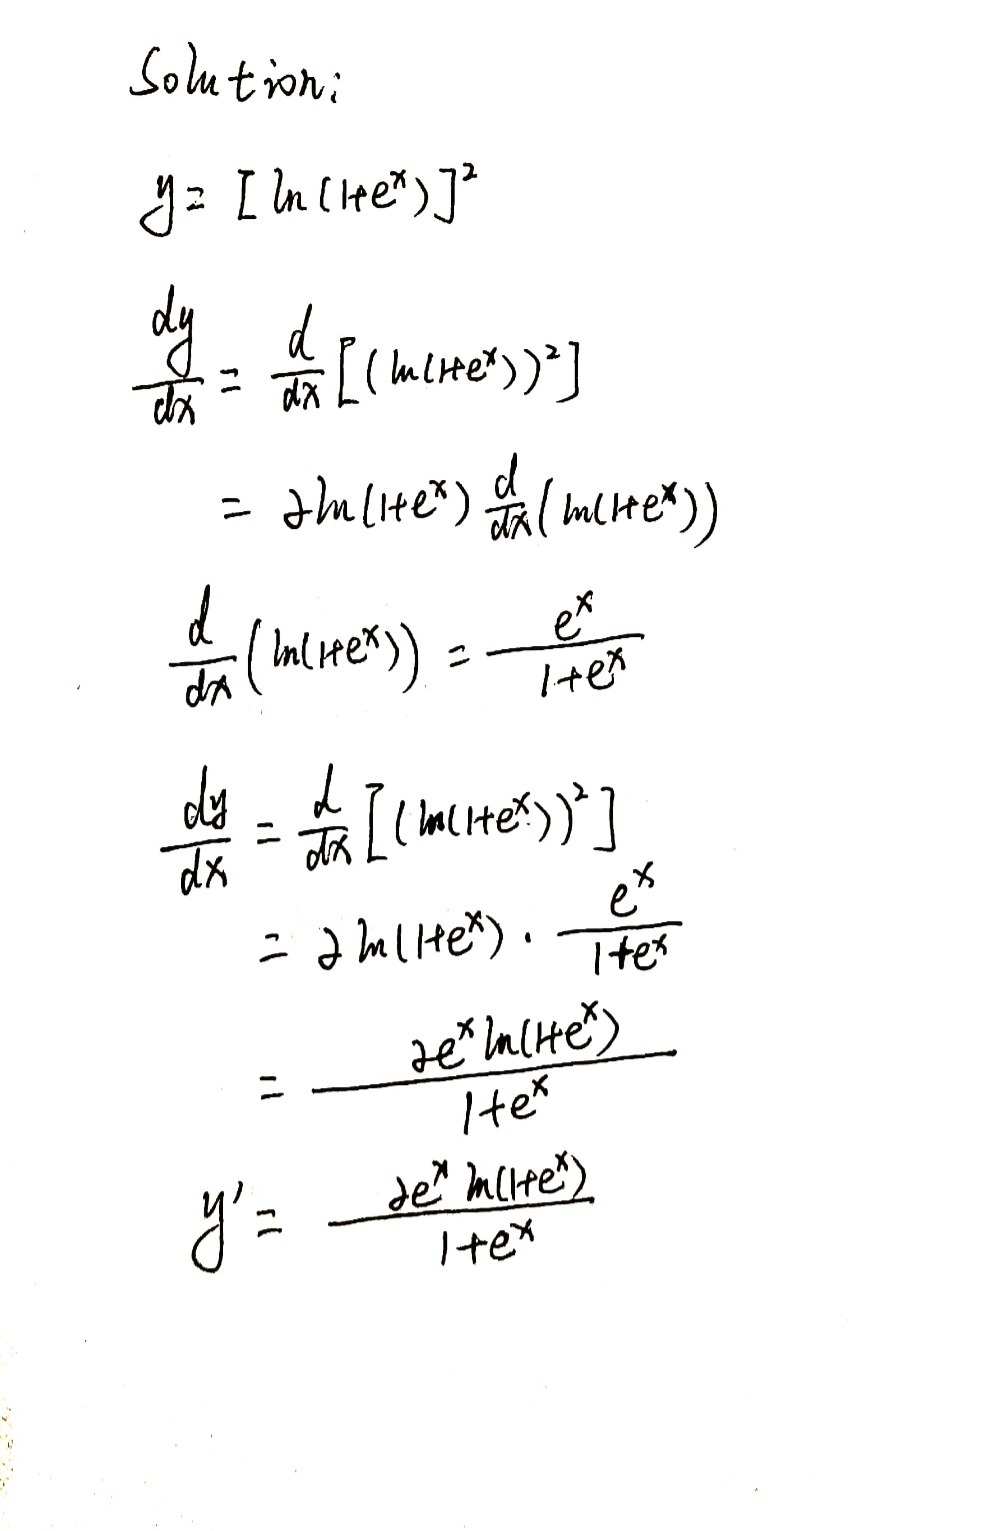 Solution:
y = [ln(1+e^x)]^2
dy/dx = d/dx [(ln(1+e^x))^2]
= 2ln(1+e^x) d/dx (ln(1+e^x))
d/dx (ln(1+e^x)) = e^x/(1+e^x)
dy/dx = d/dx [(ln(1+e^x))^2]
= 2ln(1+e^x) · e^x/(1+e^x)
= 2e^x ln(1+e^x)/(1+e^x)
y' = 2e^x ln(1+e^x)/(1+e^x)